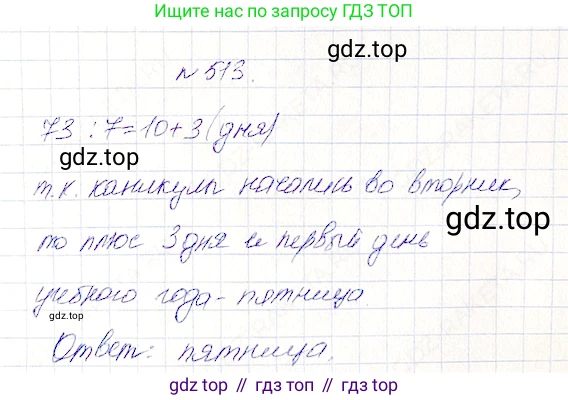 Ищите нас по запросу ГДЗ ТОП
gdz.top
№ 513.
73 : 7 = 10 + 3 (дня)
gdz.top
т.к. каникулы начались во вторник,
gdz.top
то плюс 3 дня и первый день
учебного года - пятница.
Ответ: пятница.
gdz.top // гдз.топ // gdz.top